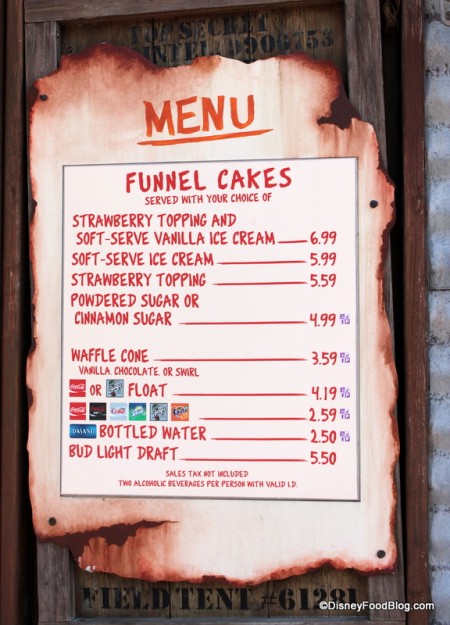 TOP SECRET
9906753
MENU
FUNNEL CAKES
SERVED WITH YOUR CHOICE OF
STRAWBERRY TOPPING AND
SOFT-SERVE VANILLA ICE CREAM 6.99
SOFT-SERVE ICE CREAM 5.99
STRAWBERRY TOPPING 5.59
POWDERED SUGAR OR
CINNAMON SUGAR 4.99
WAFFLE CONE 3.59
VANILLA, CHOCOLATE, OR SWIRL
Coca-Cola OR FLOAT 4.19
Coca-Cola Coke Sprite Fanta 2.59
DASANI BOTTLED WATER 2.50
BUD LIGHT DRAFT 5.50
SALES TAX NOT INCLUDED
TWO ALCOHOLIC BEVERAGES PER PERSON WITH VALID I.D.
FIELD TENT #61281
©DisneyFoodBlog.com